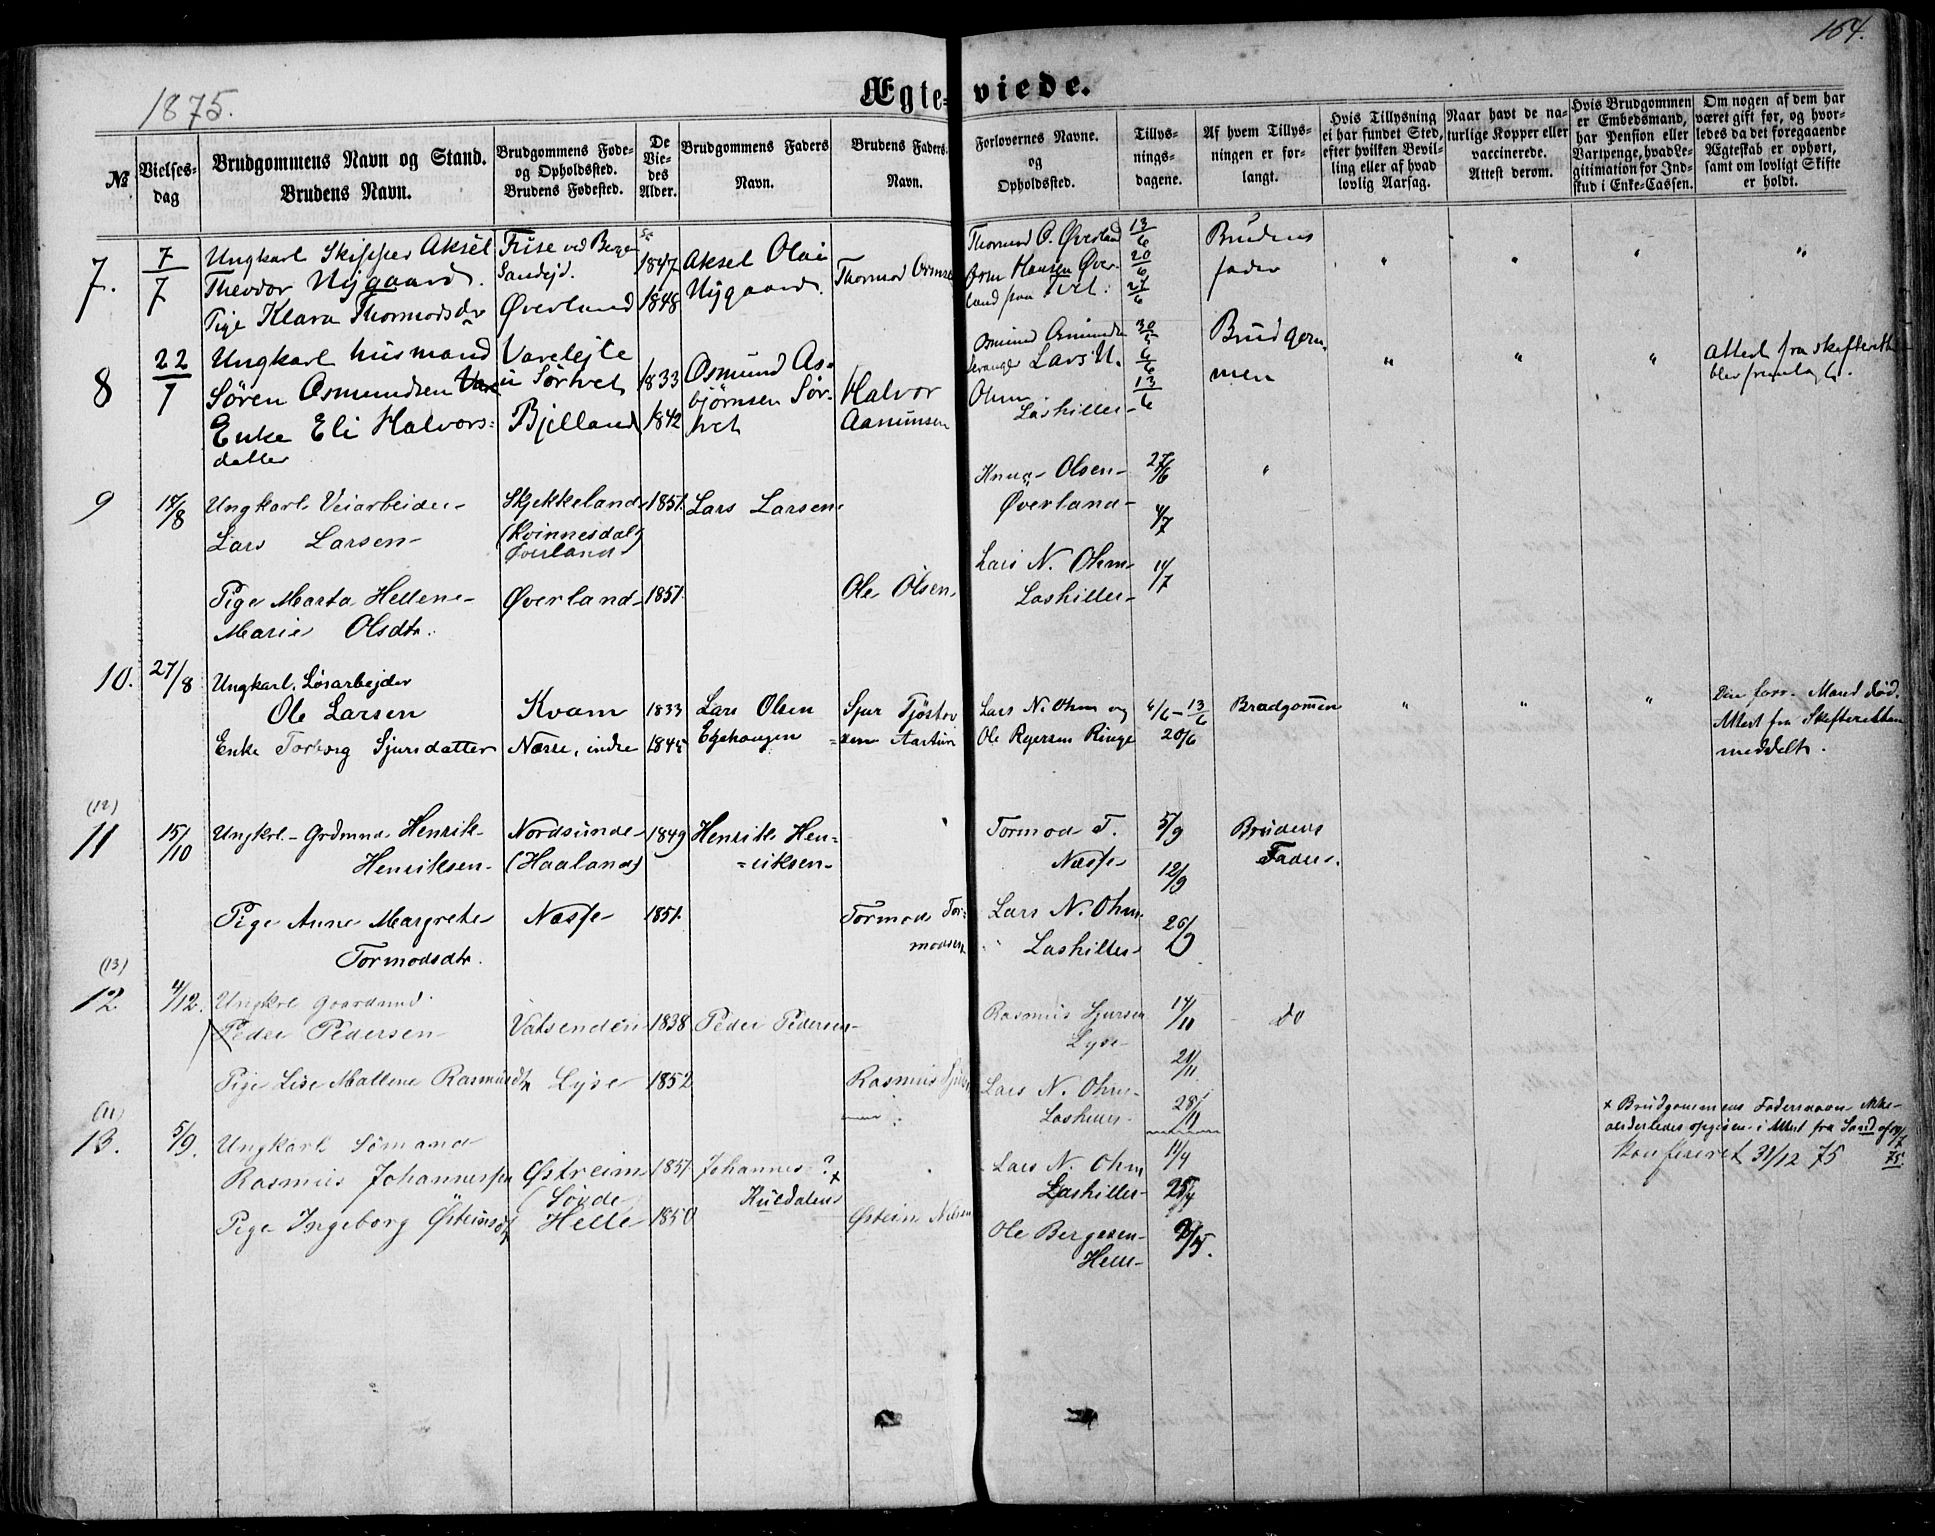 164.
1875.
Ægteviede.
No.
Vielses-dag
Brudgommens Navn og Stand.
Brudens Navn.
Brudgommens Føde- og Opholdssted.
Brudens Fødested.
De Viedes Alder.
Brudgommens Faders Navn.
Brudens Faders Navn.
Forlovernes Navne.
og
Opholdssted.
Tillys-
nings-
dagene.
Af hvem Tillys-
ningen er for-
langt.
Hvis Tillysning
ei har fundet Sted,
efter hvilken Bevil-
ling eller af hvad
lovlig Aarsag.
Naar havt de na-
turlige Kopper eller
vaccinerede.
Attest derom.
Hvis Brudgommen
er Embedsmand,
har Pension eller
Vartpenge, hvad Le-
gitimation for Ind-
skud i Enke-Cassen.
Om nogen af dem har
været gift før, og hvor-
ledes da det foregaaende
Ægteskab er ophørt,
samt om lovligt Skifte
er holdt.
7. 7/7
Ungkarl Skipper Aksel
Theodor Nygaard.
Pige Klara Thormodsdr
Sandejd.
Øverland
1847
1848
Aksel Olai
Nygaard.
Thormod
Thormod O. Øverland
Hansen Øver-
land paa Tvet.
13/6
20/6
27/6
Brudens
fader
" " " "
8 22/7
Ungkarl husmand
Søren Osmundsen
Enke Eli Halvors-
datter
Varelejte
i Sørtvet
Bjelland
1833
1842
Osmund As-
bjørnsen Sør-
tvet
Halvor
Aamunsen
Lars N.
Ohm
Lashiller
30/5
6/6
13/6
Brudgom-
men
" " "
Attest fra skifteretten
blev fremlagt.
9 17/8
Ungkarl Veiarbeider
Lars Larsen
Skjekkeland
(Kvinnesdal)
Øverland
1851.
Lars Larsen
Olsen
Øverland
27/6
4/7
"
Pige Marta Hellene
Marie Olsdtr.
Øverland
1851.
Ole Olsen
Lars N. Ohm
Lashiller
11/7
10. 27/8
Ungkarl, Løsarbejder
Ole Larsen
Enke Torborg Sjursdatter
Kvam
Næsse, indre
1833
1845
Lars Olsen
Egehaugen
Sjur Tjøstov
sen Aartun
Lars N. Ohm og
Ole Rejersen Ringe
6/6 - 13/6
20/6
Brudgommen
" " "
Din forr. Mand død.
Attest fra Skifteretten
meddelt.
(12)
11 15/10
Ungkrl. Grdmnd Henrik
Henriksen
Nordsunde
(Haaland)
1849
Henrik Hen-
riksen
Tormod T.
Næsse
5/9
12/9
Brudens
Fader.
Pige Anne Margrete
Tormodsdtr.
Næsse
1851.
Tormod Tor-
modsen
Lars N. Ohm
Lashiller
26/9
(13)
12. 4/12.
Ungkrl Gaardmd.
Peder Pedersen
Vatsenden
1838
Peder Pedersen
Rasmus Sjursen
Lyse
14/11
21/11
do
Pige Lise Mallene Rasmusdtr
Lyse
1852
Rasmus
Lars N. Ohm
Lashiller
28/11
(11)
13. 5/9.
Ungkarl Sømand
Rasmus Johannessen
Østreim
(Søvde
1851.
Johannes ? x
Kuldalens
Lars N. Ohm
Lashiller
11/4
25/4
Pige Ingeborg Østeinsdtr
Helle
1850
Østein Nilsen
Ole Bergesen
Helle
2/5.
x Brudgommens Fadersnavn ikke
anderledes opgiven i Attest fra Sand af 19/7 75.
Konfereret 31/12 75